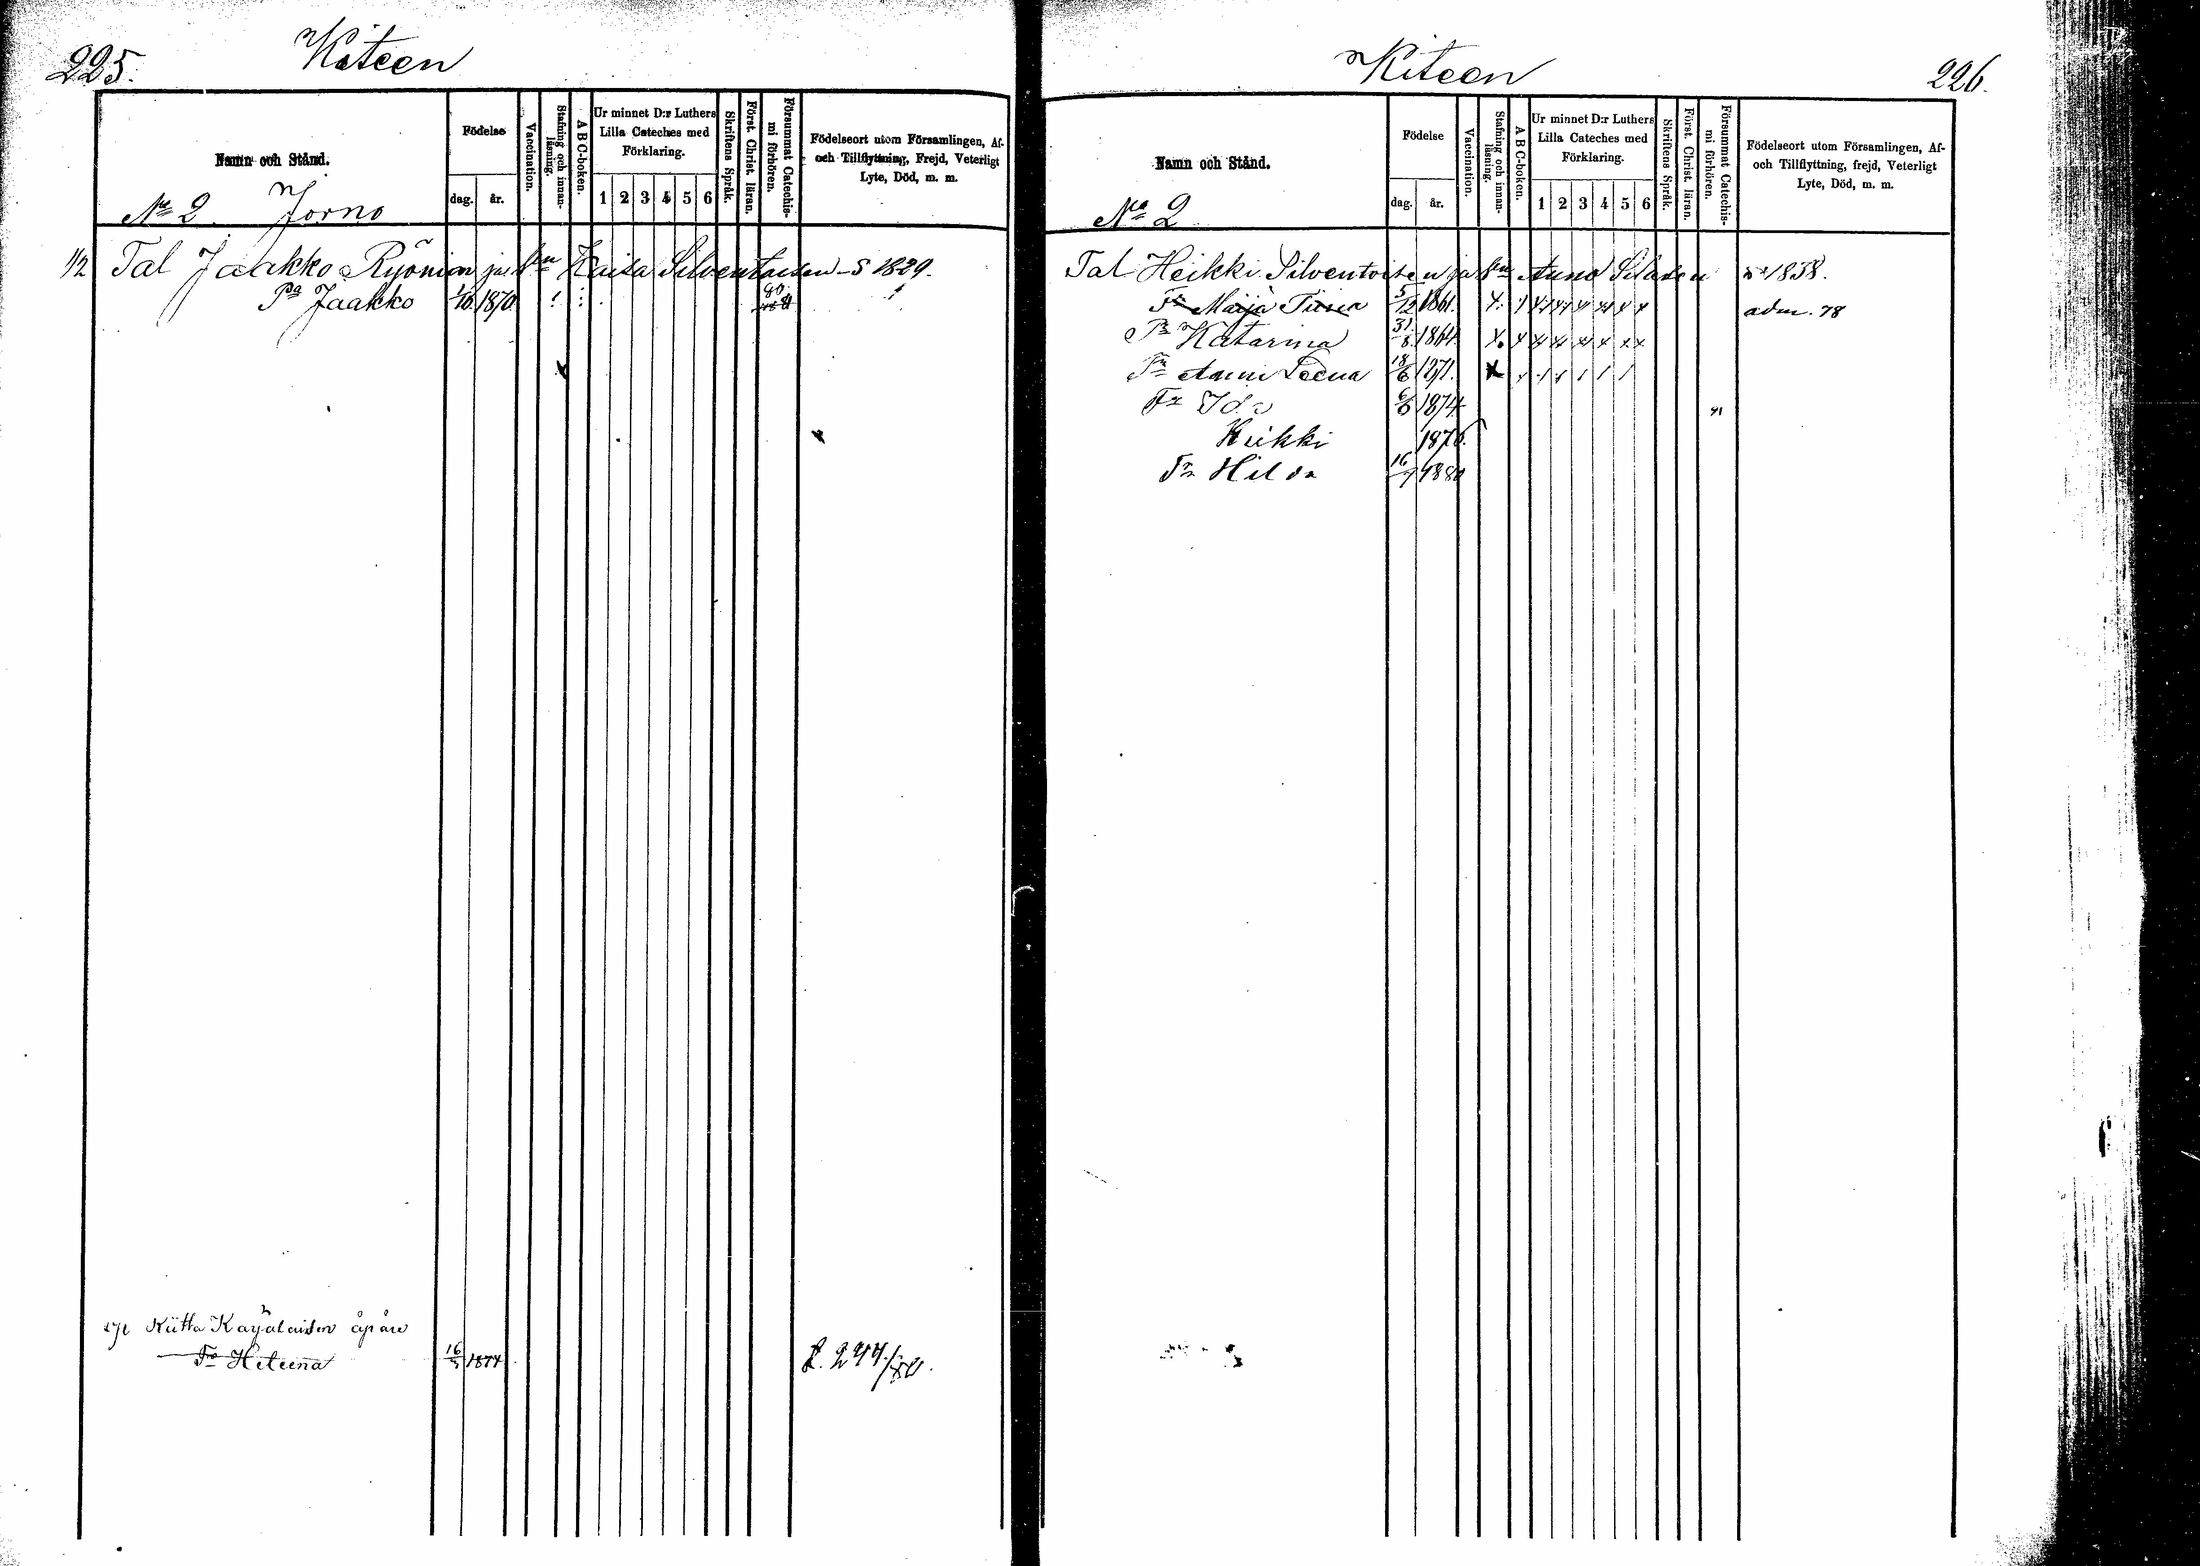 225. Kiteen
Namn och Stånd.
Födelse
dag. år.
Vaccination.
Stafning och innanläsning.
A B C-boken.
Ur minnet D:r Luthers
Lilla Cateches med
Förklaring.
1 2 3 4 5 6
Skriftens Språk.
Först. Christ. läran.
Försummat Catechismi förhören.
Födelseort utom Församlingen, Af-
och Tillflyttning, Frejd, Veterligt
Lyte, Död, m. m.
No 2 Jorno
1/2 Tal Jaakko Ryönän ja Kaisa Silventoisen - S 1829.
Pa Jaakko 1870
Riitta Käyälaisen
Fa Heleena 16 1877 S. 244/80.
Kiteen 226.
Namn och Stånd.
Födelse
dag. år.
Vaccination.
Stafning och innanläsning.
A B C-boken.
Ur minnet D:r Luthers
Lilla Cateches med
Förklaring.
1 2 3 4 5 6
Skriftens Språk.
Först. Christ. läran.
Försummat Catechismi förhören.
Födelseort utom Församlingen, Af-
och Tillflyttning, frejd, Veterligt
Lyte, Död, m. m.
No 2
Tal Heikki Silventoisen ja Anna 1838.
Maija 5/12 1861. adm. 78
Katarina 31/8 1864
Anni Leena 18/6 1871.
Ida 1874
Heikki 1876
Hilda 16/7 1880